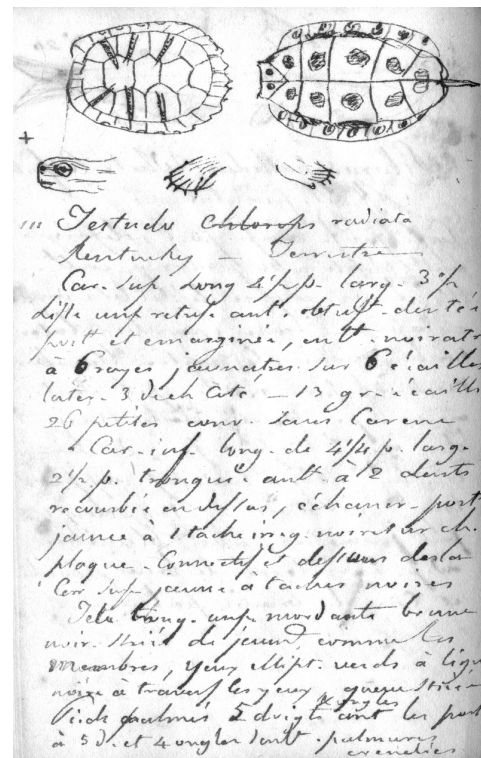 Testudo chlorops radiata
Kentucky — Terrestre
Car. sup. long 4½ p. larg. 3½ p.
antt. obtus. dentée
postt et emarginée, noiratre
à 6 rayes jaunatres sur 6 écailles
later. 3 de ch. coté — 13 gr. écailles
26 petites conv. sans Carene
Car. inf. long. de 4¼ p. larg.
2½ p. tronquée antt. à 2 dents
recourbée en dessus, échancr. postt
jaune à 1 tache irreg. noiratre sur ch.
plaque. Connectif et dessous de la
Car sup. jaune à taches noires
Tete mordante brune
noir. striée de jaune comme les
membres, yeux ellipt. verds à ligne
noire à travers les yeux, queue striée
Pieds palmés 5 doigts & ongles antt. les postt
à 5 d. et 4 ongles palmures
crenelées